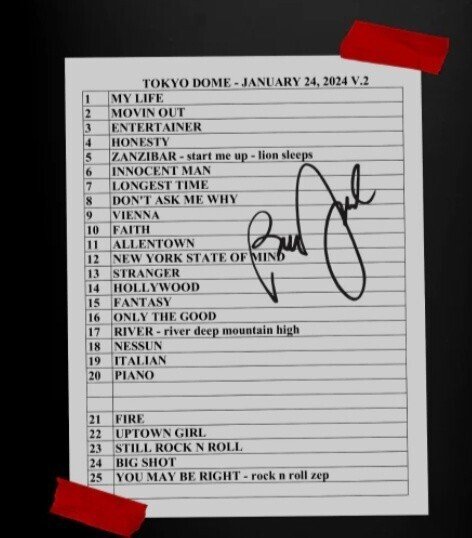 TOKYO DOME - JANUARY 24, 2024 V.2
1 MY LIFE
2 MOVIN OUT
3 ENTERTAINER
4 HONESTY
5 ZANZIBAR - start me up - lion sleeps
6 INNOCENT MAN
7 LONGEST TIME
8 DON'T ASK ME WHY
9 VIENNA
10 FAITH
11 ALLENTOWN
12 NEW YORK STATE OF MIND
13 STRANGER
14 HOLLYWOOD
15 FANTASY
16 ONLY THE GOOD
17 RIVER - river deep mountain high
18 NESSUN
19 ITALIAN
20 PIANO
21 FIRE
22 UPTOWN GIRL
23 STILL ROCK N ROLL
24 BIG SHOT
25 YOU MAY BE RIGHT - rock n roll zep